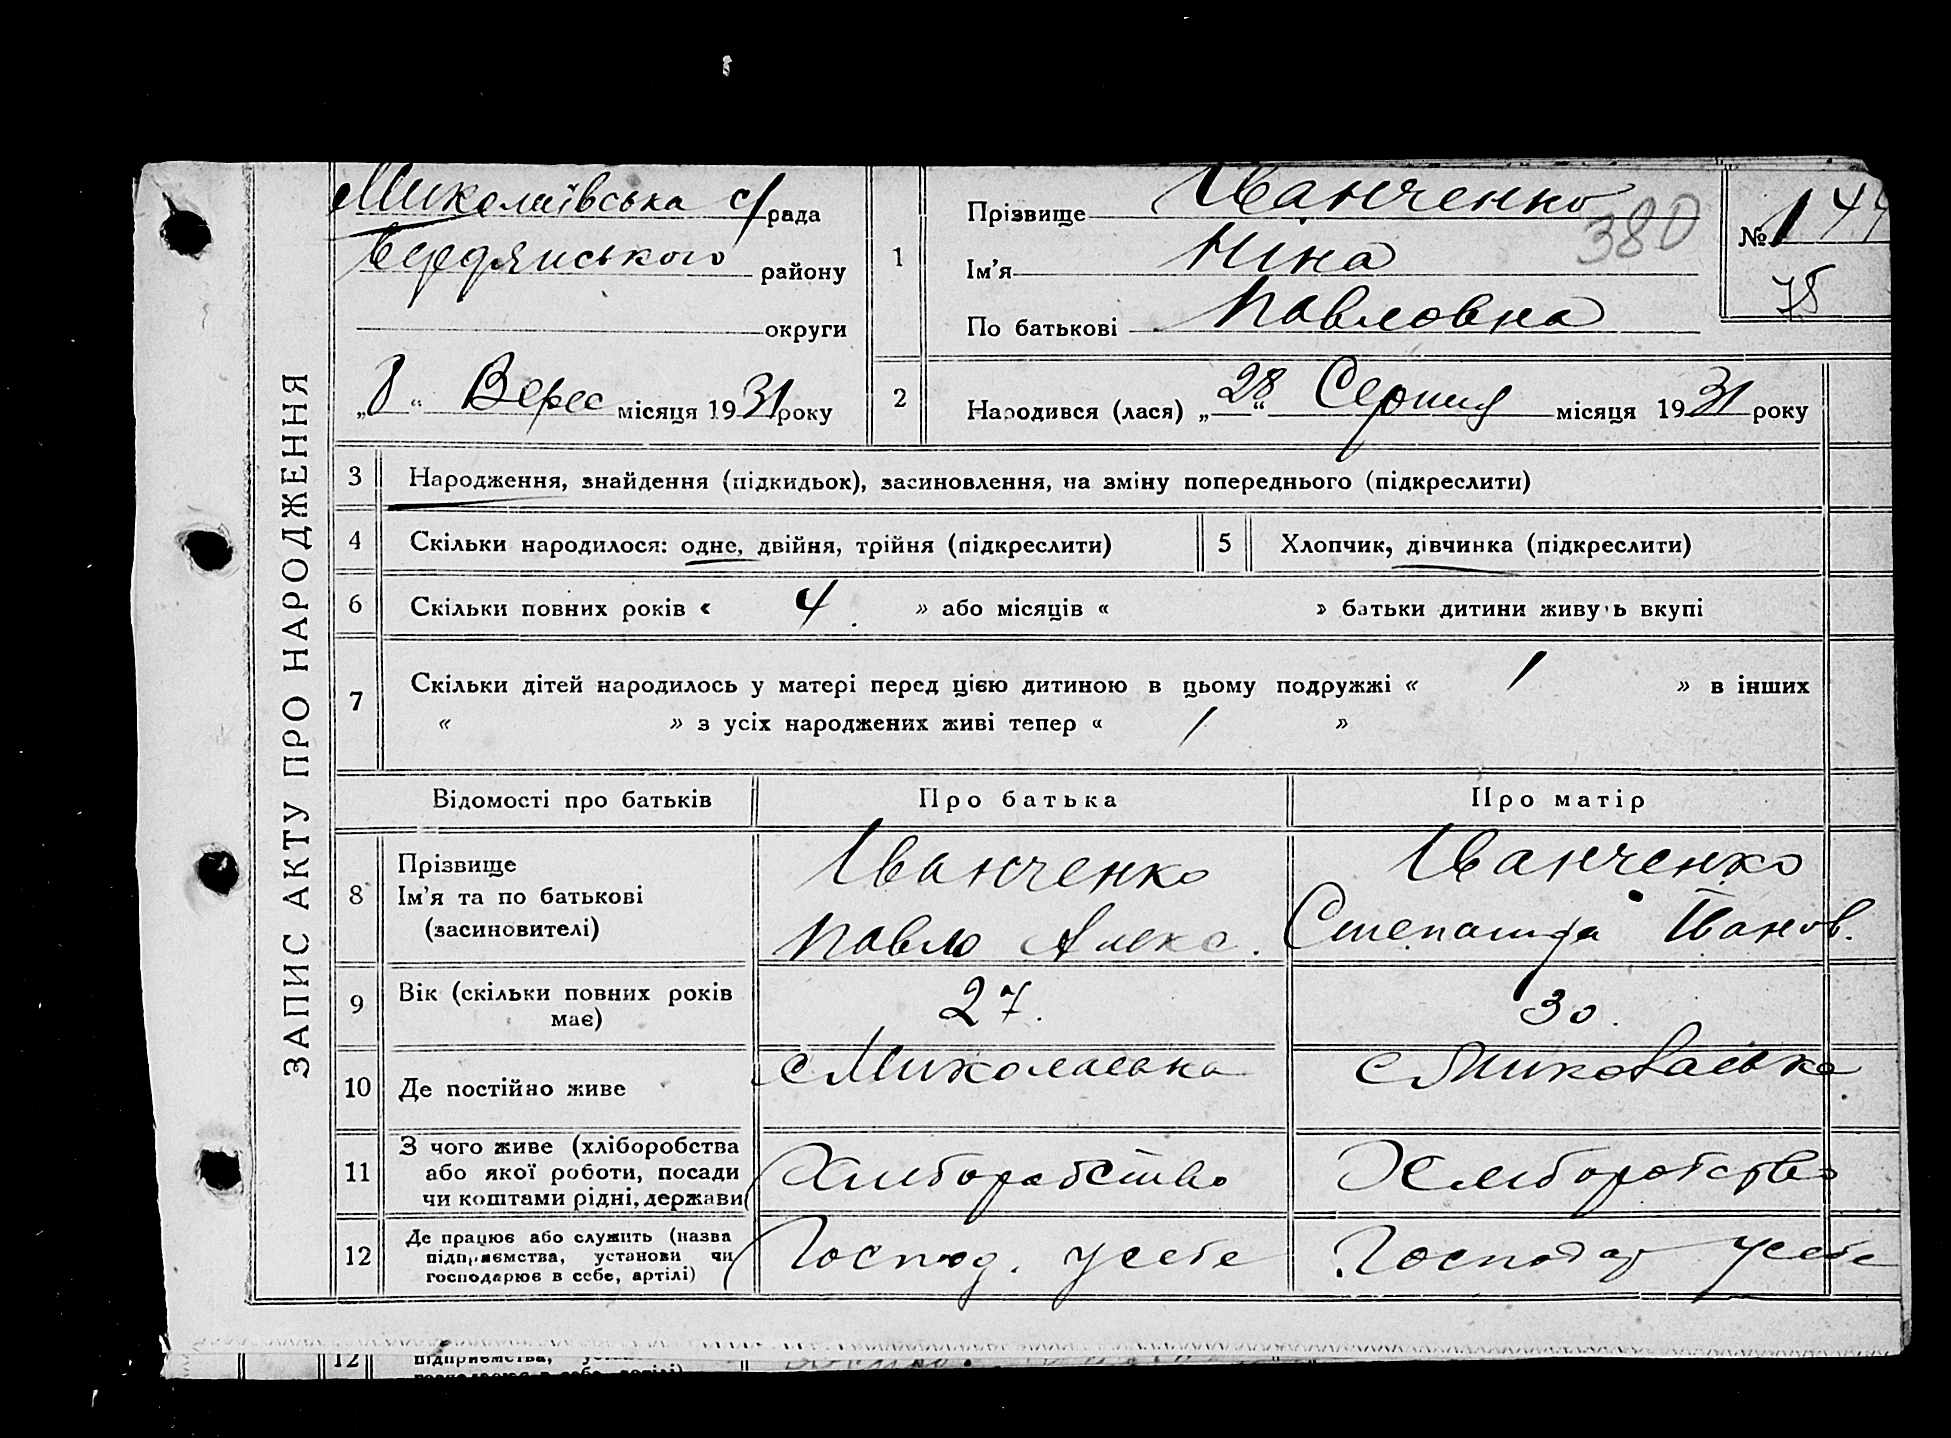 ЗАПИС АКТУ ПРО НАРОДЖЕННЯ
Миколаївська с/рада
Бердянського району
округи
„8“ Верес місяця 1931 року
1
Прізвище Іванченко
Ім’я Ніна
По батькові Павловна
380
№ 144
75
2 Народився (лася) „28“ Серпня місяця 1931 року
3 Народження, знайдення (підкидьок), засиновлення, на зміну попереднього (підкреслити)
4 Скільки народилося: одне, двійня, трійня (підкреслити)
5 Хлопчик, дівчинка (підкреслити)
6 Скільки повних років « 4 » або місяців « » батьки дитини живуть вкупі
7 Скільки дітей народилось у матері перед цією дитиною в цьому подружжі « 1 » в інших
« » з усіх народжених живі тепер « 1 »
Відомості про батьків Про батька Про матір
8 Прізвище
Ім’я та по батькові
(засиновителі)
Іванченко
Павло Алекс.
Іванченко
Степанида Іванов.
9 Вік (скільки повних років
має)
27.
30.
10 Де постійно живе
с Миколаєвка
с Миколаєвка
11 З чого живе (хліборобства
або якої роботи, посади
чи коштами рідні, держави)
Хлиборобство
Хлиборобство
12 Де працює або служить (назва
підприємства, установи чи
господарює в себе, артілі)
Господ. у себе
Господар у себе
12 підприємства,